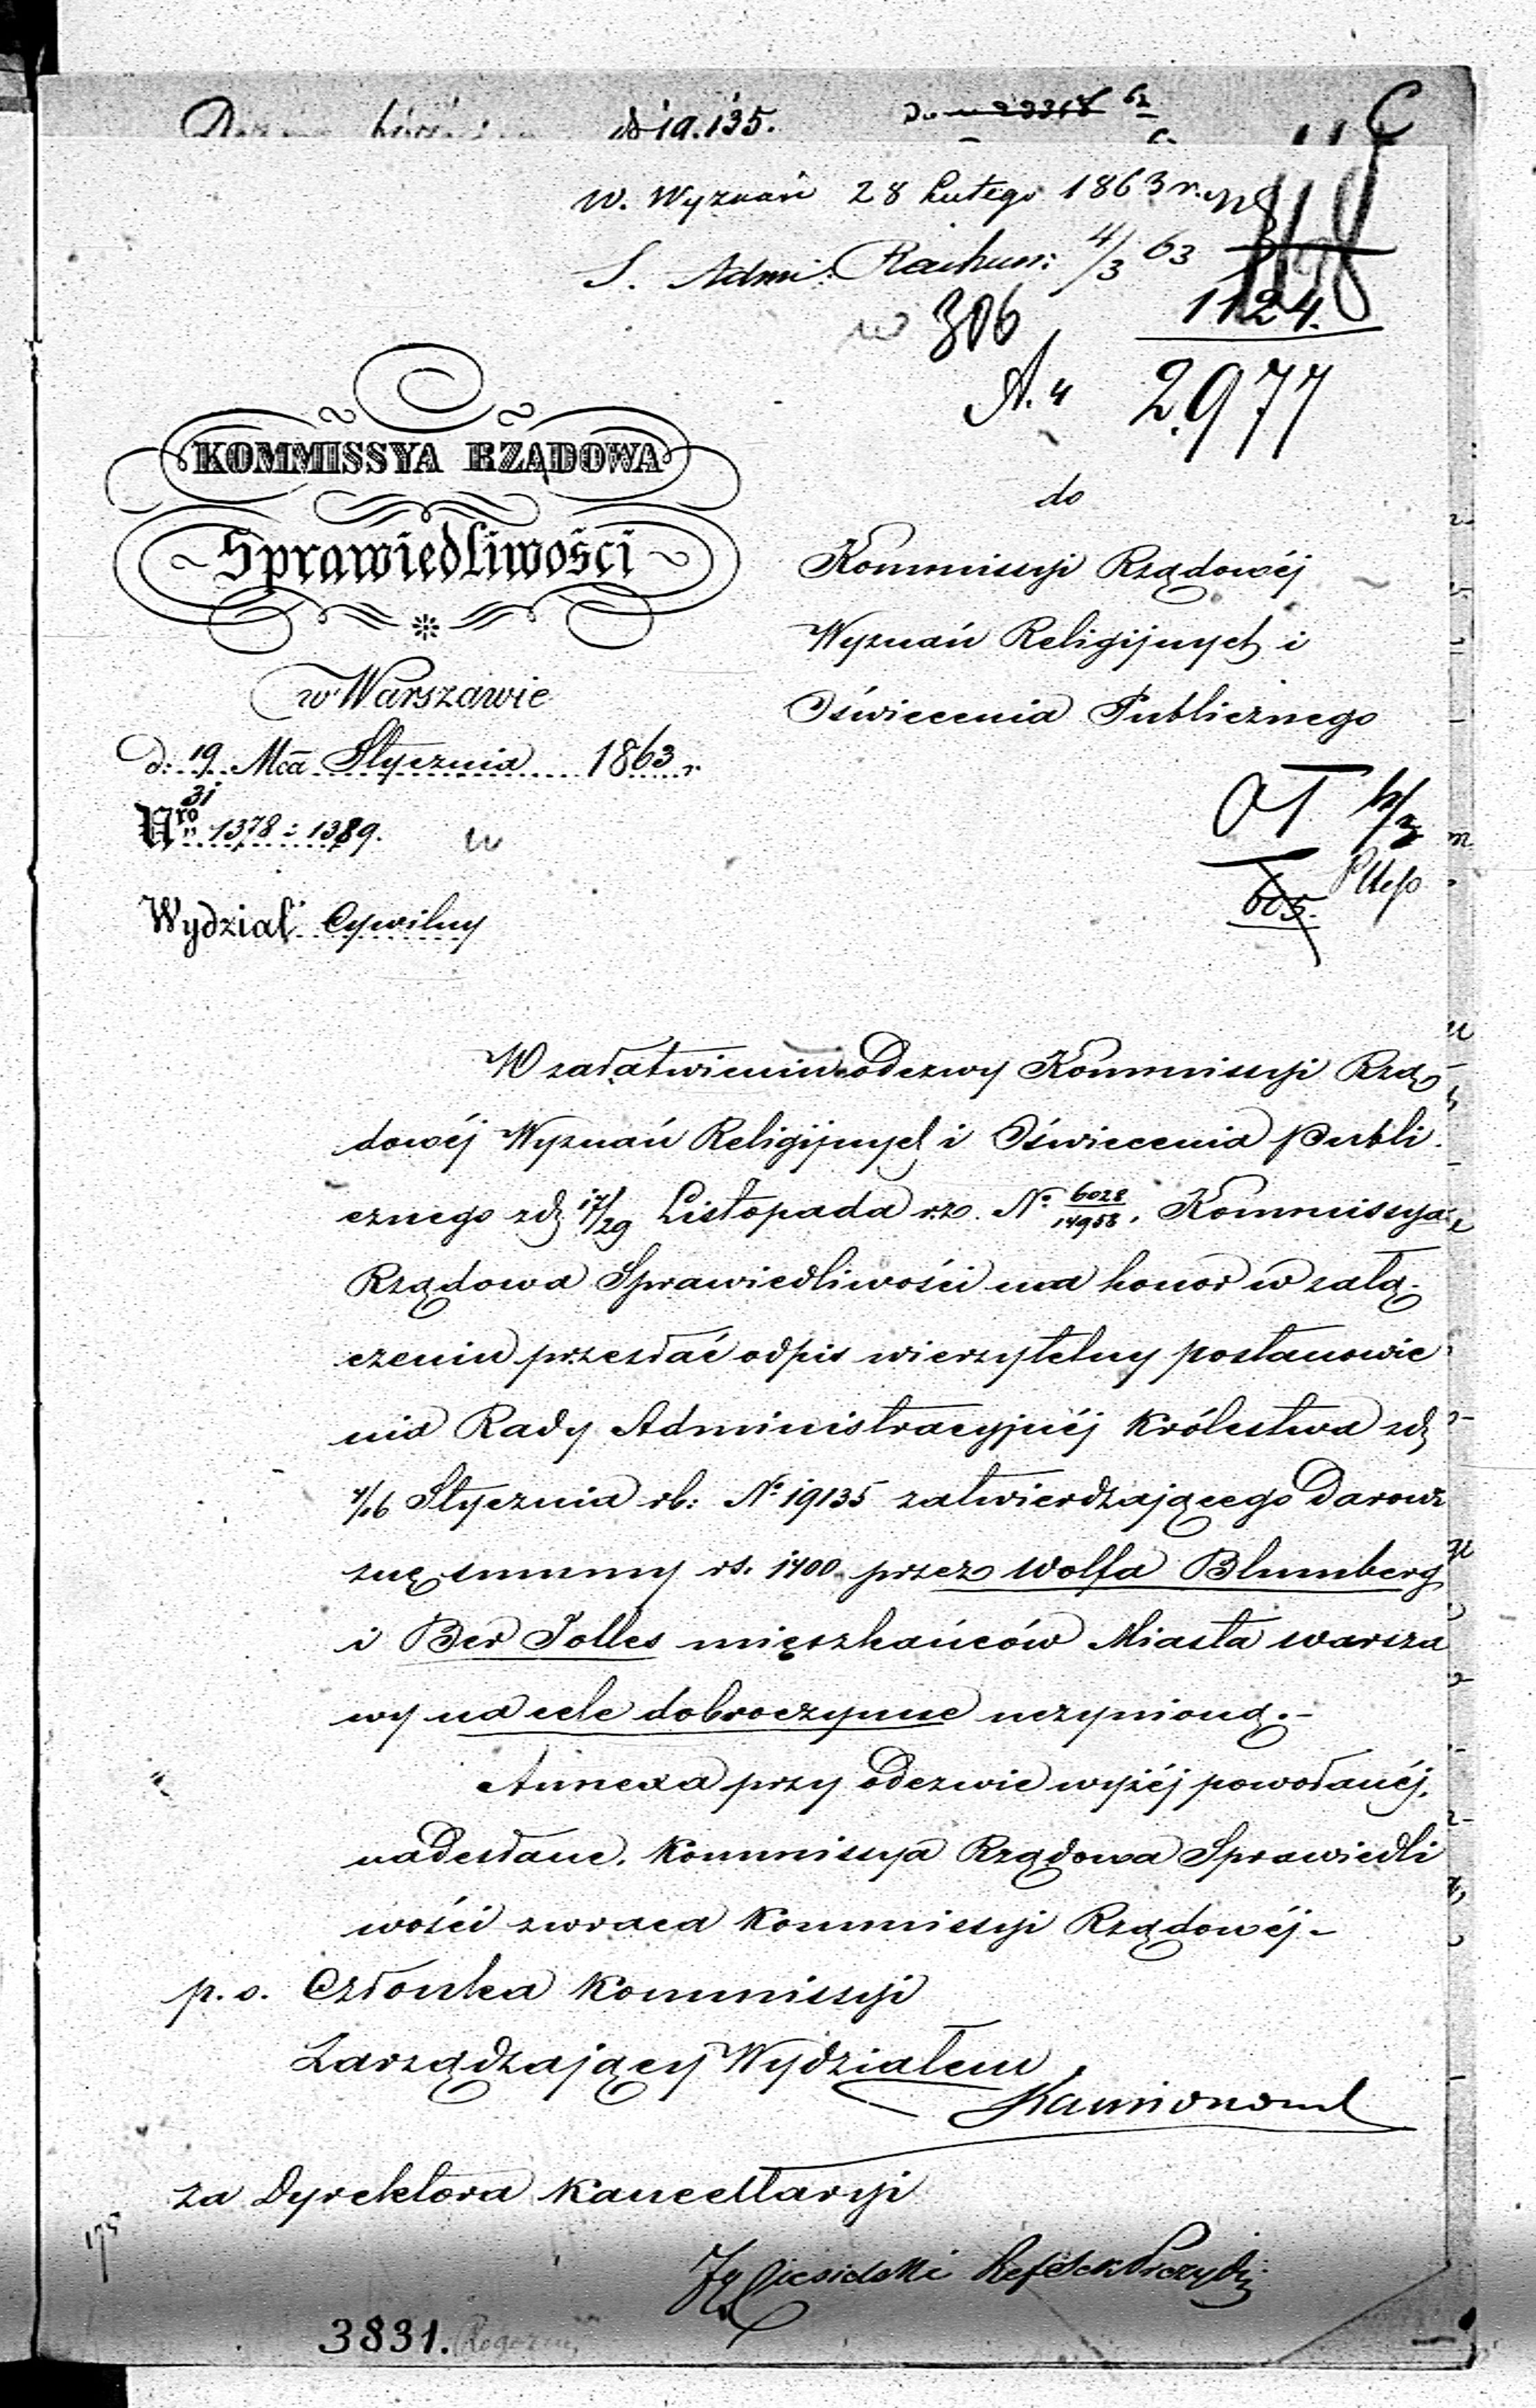 № 19.135.
w. Wyznań 28 Lutego 1863 r.
S. Admi: Rachun: 4/3 63
w 306
1124.
A. 4 2977
KOMMISSYA RZĄDOWA
Sprawiedliwości
w Warszawie
d: 19/31 Mca Stycznia 1863 r.
Nro 1378 : 1389.
Wydział Cywilny
do
Kommissyi Rządowéj
Wyznań Religijnych i
Oświecenia Publicznego
605.
W załatwieniu odezwy Kommissyi Rzą
dowéj Wyznań Religijnych i Oświecenia Publi
cznego z d. 17/29 Listopada r.z. № 6028/14958, Kommissya
Rządowa Sprawiedliwości ma honor w załą-
czeniu przesłać odpis wierzytelny postanowie
nia Rady Administracyjnéj Królestwa z d.
4/16 Stycznia rb: № 19135 zatwierdzającego Darowi
znę summy rs. 1400 przez Wolfa Blumberg
i Ber Jolles mięszkańców Miasta Warsza
wy na cele dobroczynne uczynioną.-
Annexa przy odezwie wyżéj powołanéj,
nadesłane, Kommissya Rządowa Sprawiedli
wości zwraca Kommissyi Rządowéj-
p. o. Członka Kommissyi
Zarządzający Wydziałem
za Dyrektora Kancellaryi
175
3831.